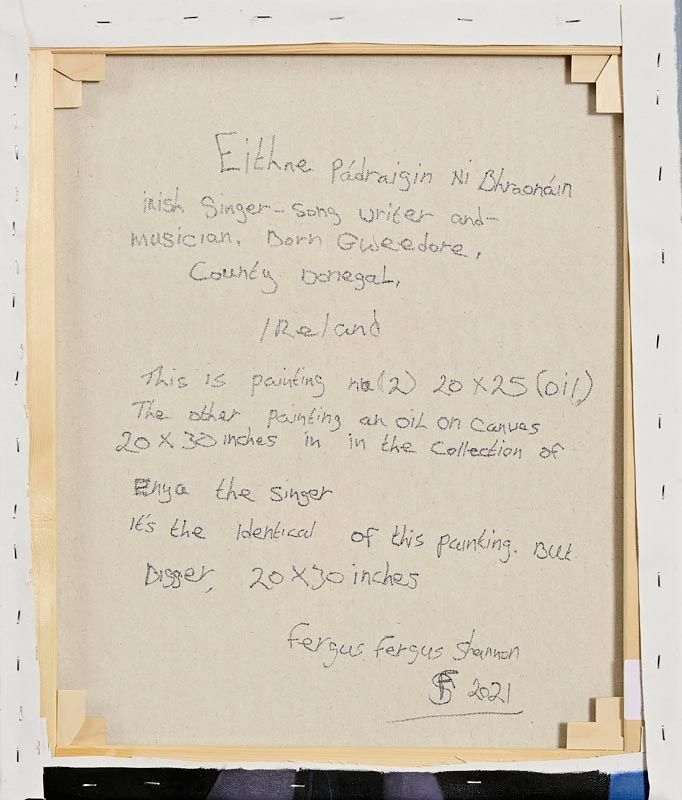 Eithne Pádraigin Ni Bhraonáin
irish Singer-song writer and-
musician. Born Gweedore,
County Donegal,
IReland
This is painting no (2) 20 X 25 (oil)
The other painting an oil on canvas
20 X 30 inches in in the collection of
Enya the singer
It's the Identical of this painting. But
Bigger, 20 X 30 inches
Fergus Fergus Shannon
FS 2021